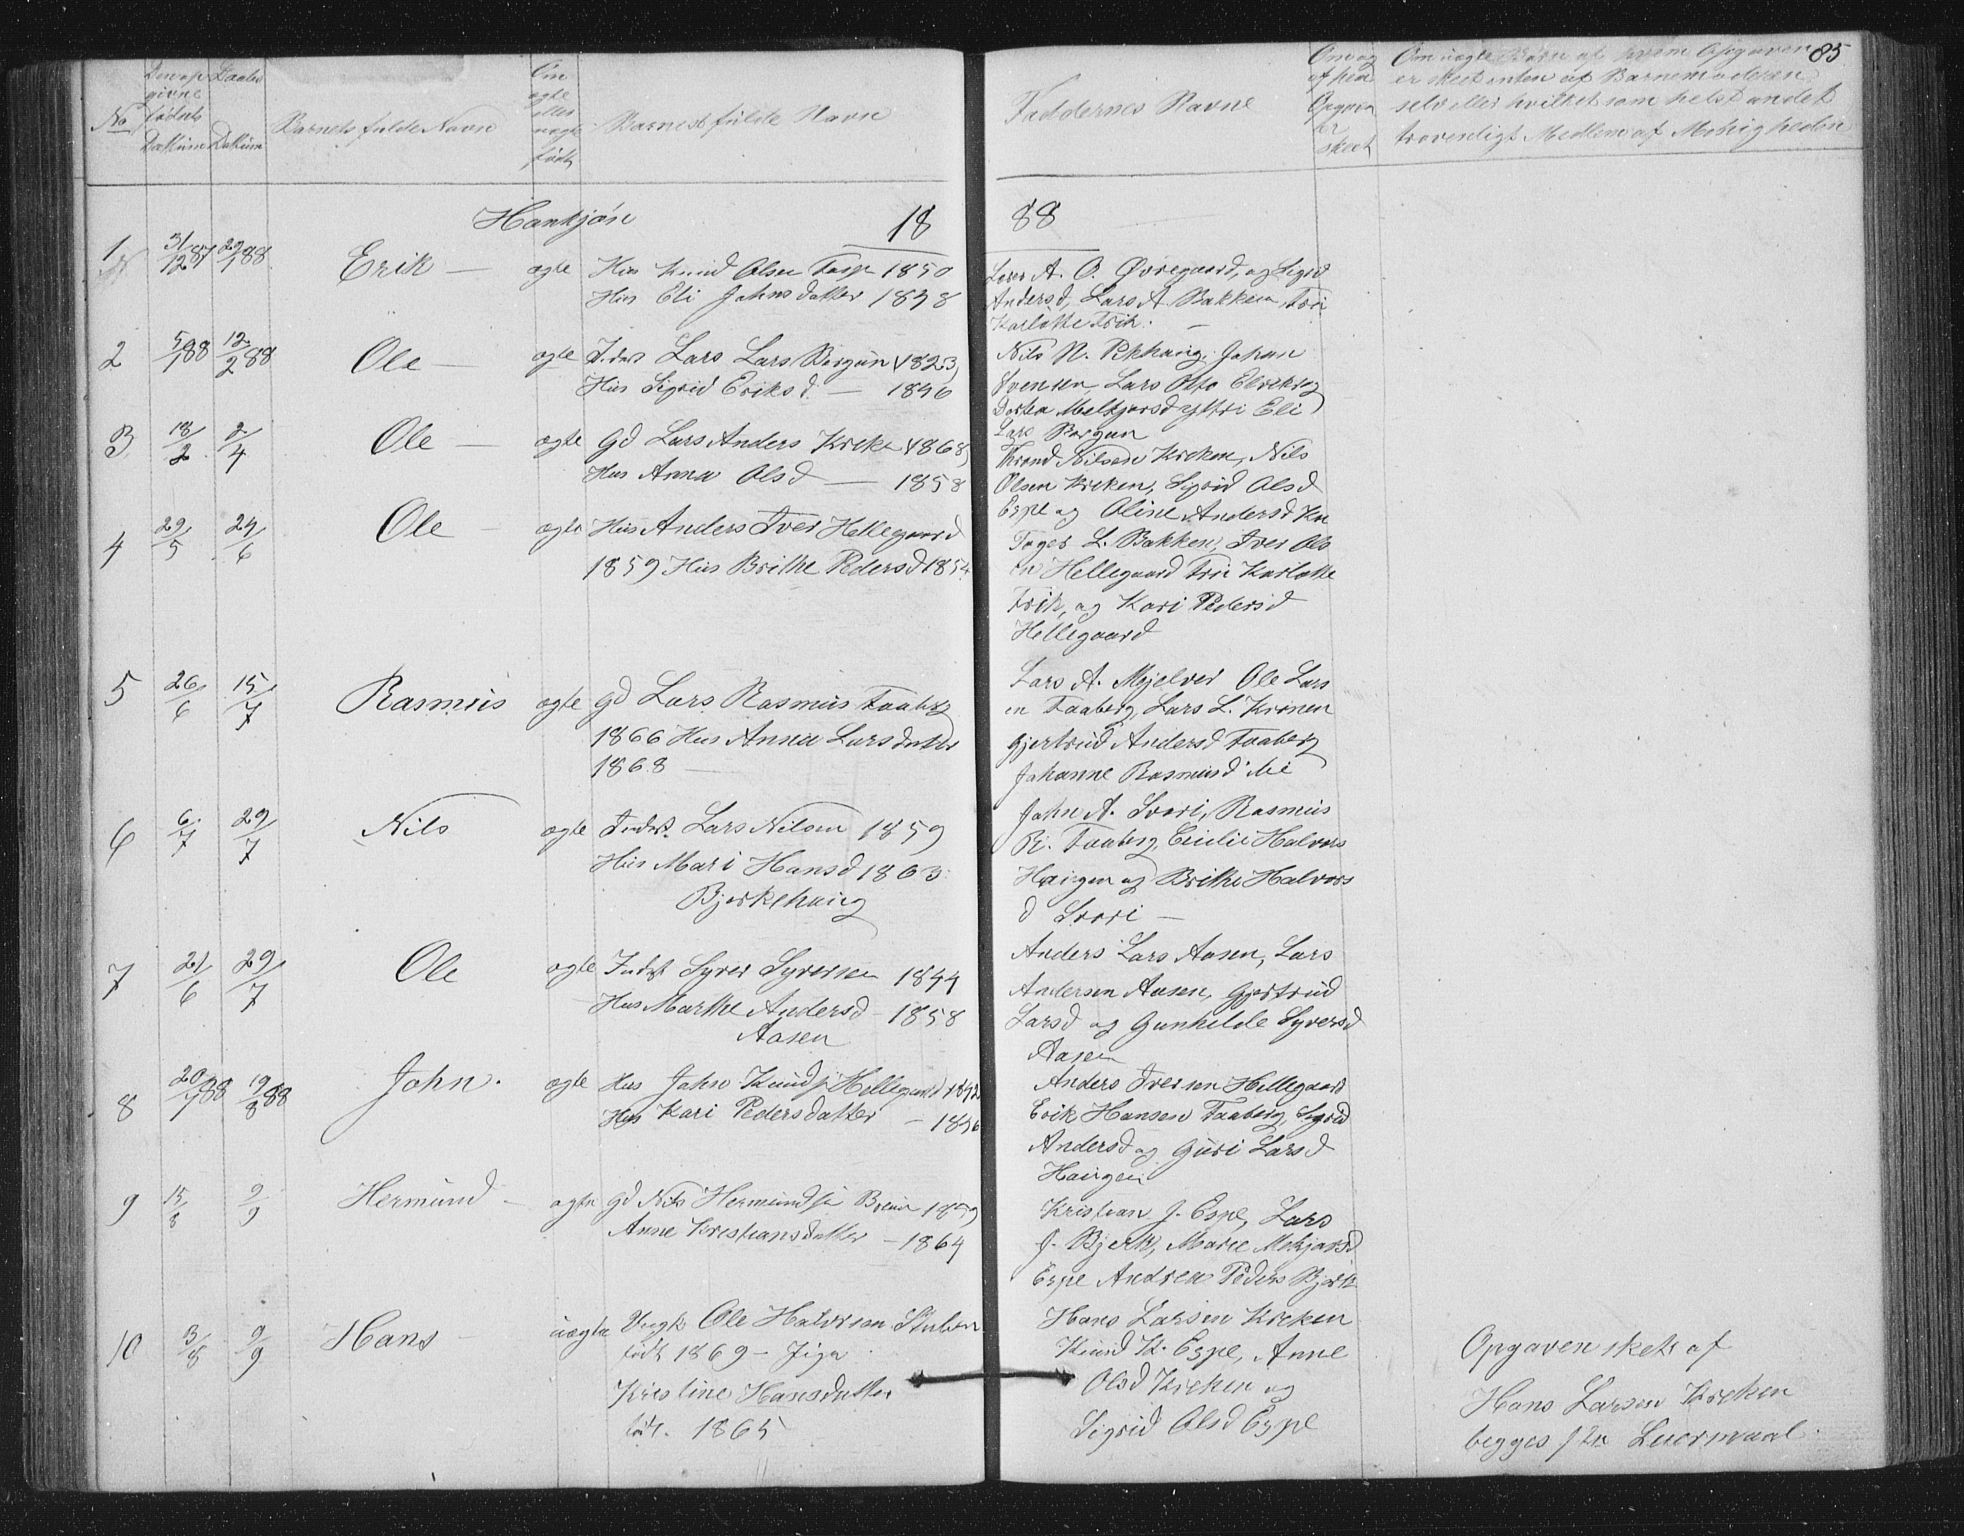 85
No
Daabs
givne
fødsls
Datum Datum
Barnets fulde Navn
Om
ægte
eller
uægte
født
Barnets fulde Navn
Faddernes Navne
Om og
af hvem
Opgava
er
skeet
Om uægte Børn af hvem Opgaven
er skeet enten af Barnemoderen
selv eller hvilketsomhelst andet
troværdigt Medlem af Menigheden
Hankjøn 18 88
1 31/12 87 29/1 88 Erik — ægte Hus Knud Olsen 1850
Hus Eli Johnsdatter 1848
Lars A. O. Øvregaard, og Sigrid
Andersd, Lars A Bakken, Fru
Karlotte Frik. —
2 5/1 88 12/2 88 Ole — ægte Inders Lars Lars Borgun 1823,
Hus Sigrid Eriksd. — 1846
Nils N. Pikhaug, Johan
Svensen, Lars Otto
Dortea Eli
Lars Borgun
3 18/2 2/4 Ole — ægte Gd Lars Anders Kreken 1868,
Hus Anna Olsd — 1858
Trond Nilsen Kreken, Nils
Olsen Kreken, Sigrid Olsd
Espe og Oline Andersd
4 29/5 24/6 Ole — ægte Hus Anders Iver Hellegaard
1859 Hus Brithe Pedersd 1854
L. Bakken, Iver Ols
en Hellegaard Fru Karlotte
Frik, og Kari Pedersd
Hellegaard
5 26/6 15/7 Rasmus ægte gd Lars Rasmus Faaberg
1866 Hus Anna Larsdatter
1868 —
Lars A. Mjelver Ole Lars
en Faaberg, Lars L. Kronen
Gjertrud Andersd Faaberg
Johanne Rasmusd
6 6/7 29/7 Nils ægte Inderst. Lars Nilsen 1859
Hus Mari Hansd 1863
Bjerkehaug
John A. Svori, Rasmus
R. Faaberg, Cecilie Halvors
Haugen og Brithe Halvors
d Svori —
7 21/6 29/7 Ole ægte Indst Syver Syversen 1844
Hus Marthe Andersd — 1858
Aasen
Anders Lars Aasen, Lars
Andersen Aasen, Gjertrud
Larsd og Gunhilde Syversd
Aasen
8 20/7 88 19/8 88 John. ægte Hus John Knuds Hellegaard
Hus Kari Pedersdatter — 1846
Anders Iversen Hellegaard
Erik Hansen Faaberg, Sigrid
Andersd og Guri Larsd
Haugen
9 15/8 9/9 Hermund — ægte gd Nils Hermunds
Anne Kristiansdatter — 1864
Kristian J. Espe, Lars
J. Bjerk, Marie
Espe Andrea Peders Bjerk
10 3/8 9/9 Hans — uægte Ungk Ole Halvorsen
født 1869 — Piga
Kristine Hansdatter
født. 1865
Hans Larsen Kreken
Knud K. Espe, Anne
Olsd Kreken og
Sigrid Olsd Espe
Opgaven skets af
Hans Larsen Kreken
begges